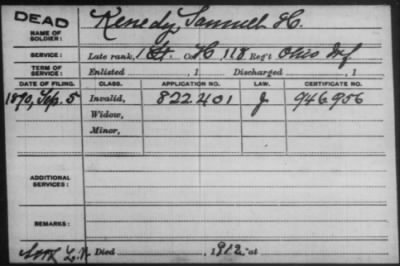 DEAD
NAME OF SOLDIER: Kenedy, Samuel H.
SERVICE: Late rank, 1 Lt. Co. H, 118 Reg't Ohio Inf
TERM OF SERVICE: Enlisted , 1 Discharged , 1
DATE OF FILING. CLASS. APPLICATION NO. LAW. CERTIFICATE NO.
1890, Sep. 5 Invalid, 822.401 J 946956
Widow,
Minor,
ADDITIONAL SERVICES:
REMARKS:
Died , 1912, at